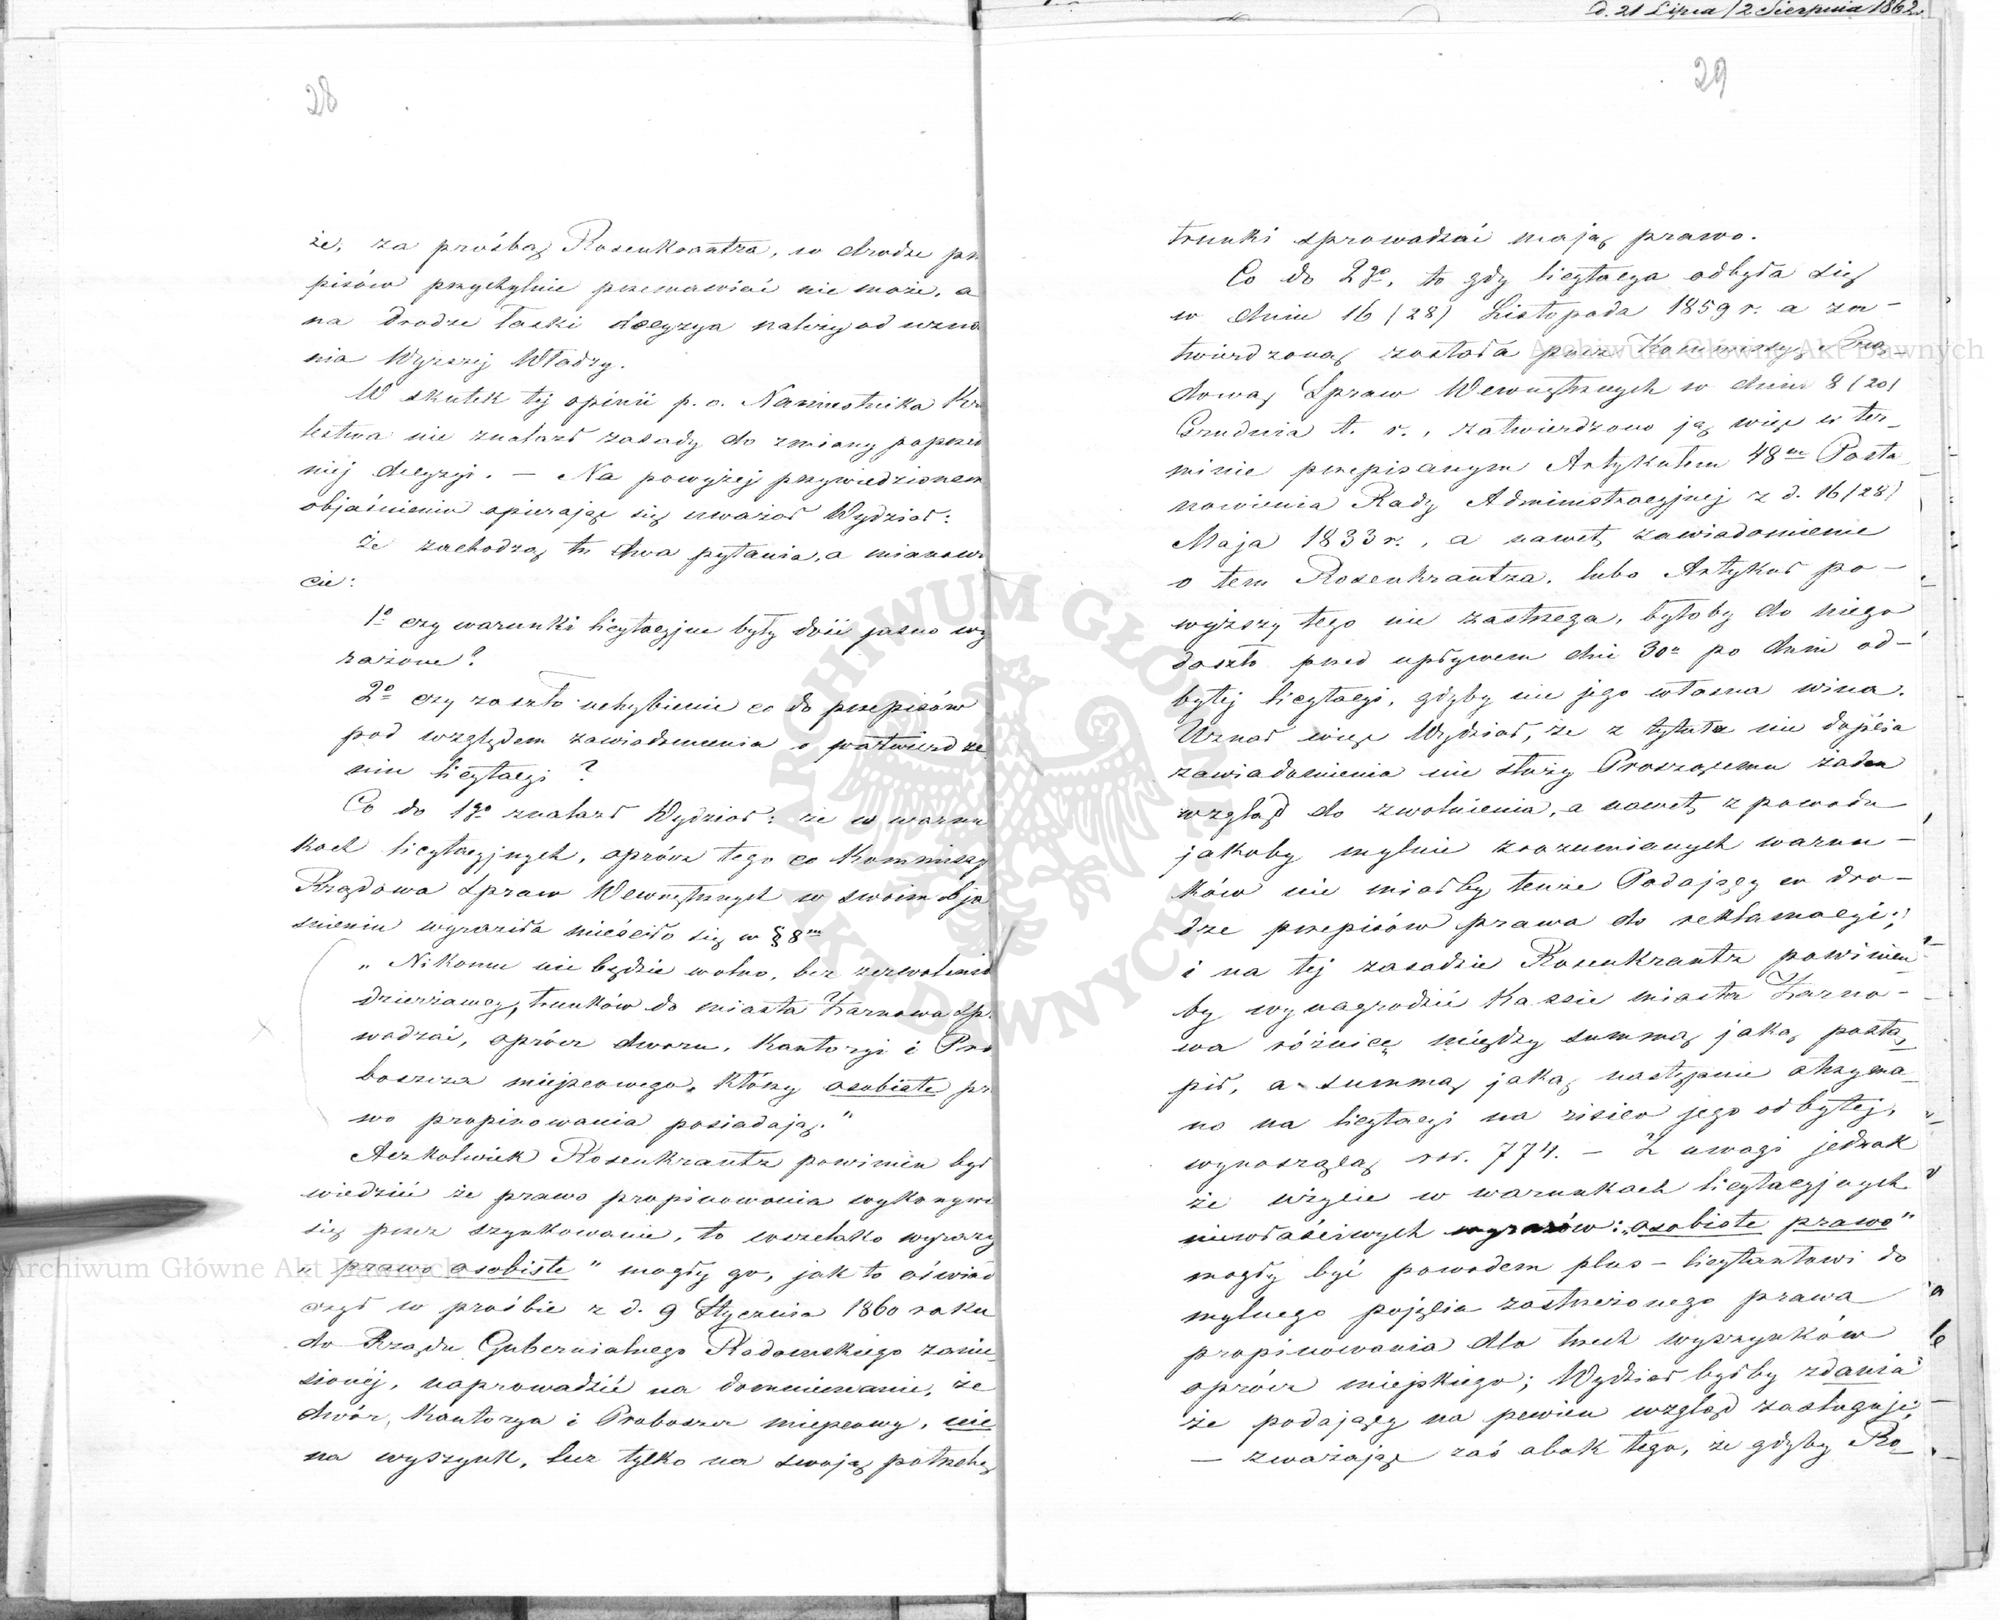 d. 21 Lipca / 2 Sierpnia 1862
28
że, za prośbą Rosenkrantza, w drodze prze
pisów przychylnie przemawiać nie może, a
na drodze łaski decyzya należy od uzna
nia Wyższej Władzy.
W skutek tej opinii p. o. Namiestnika Kró
lestwa nie znalazł zasady do zmiany poprzed
niej decyzyi. — Na powyżej przywiedzionem
objaśnieniu opierając się uważał Wydział:
że zachodzą tu dwa pytania, a mianowi
cie:
1o czy warunki licytacyjne były dość jasno wy
rażone?
2o czy zaszło uchybienie co do przepisów
pod względem zawiadomienia o zatwierdze
niu licytacyi?
Co do 1go znalazł Wydział: że w warun
kach licytacyjnych, oprócz tego co Kommissya
Rządowa Spraw Wewnętrznych w swoim obja
śnieniu wyraziła mieściło się w § 8m
„Nikomu nie będzie wolno, bez zezwolenia
dzierżawcy, trunków do miasta Żarnowa spro
wadzać, oprócz dworu, Kantoryi i Pro
boszcza miejscowego, którzy osobiste pra
wo propinowania posiadają."
Aczkolwiek Rosenkrantz powinien był
wiedzieć że prawo propinowania wykonywa
się przez szynkowanie, to wszelako wyrazy
„prawo osobiste" mogły go, jak to oświad
czył w prośbie z d. 9 Stycznia 1860 roku
do Rządu Gubernialnego Radomskiego zanie
sionej, naprowadzić na domniemanie, że
dwór, Kantorya i Proboszcz miejscowy, nie
na wyszynk, lecz tylko na swoją potrzebę
29
trunki sprowadzać mają prawo.
Co do 2go, to gdy licytacya odbyła się
w dniu 16 (28) Listopada 1859 r. a za-
twierdzoną została przez Kommissyę Rzą-
dową Spraw Wewnętrznych w dniu 8 (20)
Grudnia t. r., zatwierdzono ją więc w ter-
minie przepisanym Artykułem 48m Posta
nowienia Rady Administracyjnej z d. 16 (28)
Maja 1833 r., a nawet zawiadomienie
o tem Rosenkrantza, lubo Artykuł po-
wyższy tego nie zastrzega, byłoby do niego
doszło przed upływem dni 30u po dniu od-
bytej licytacyi, gdyby nie jego własna wina.
Uznał więc Wydział, że z tytułu nie dojścia
zawiadomienia nie służy Proszącemu żaden
wzgląd do zwolnienia, a nawet z powodu
jakoby mylnie zrozumianych warun-
ków nie miałby tenże Podający w dro-
dze przepisów prawa do reklamacyi;
i na tej zasadzie Rosenkrantz powinien
by wynagrodzić Kassie miasta Żarno-
wa różnicę między summą jaką postą-
pił, a summą jaką następnie otrzyma-
no na licytacyi na risico jego odbytej,
wynoszącą rsr. 774. — Z uwagi jednak
że użycie w warunkach licytacyjnych
niewłaściwych wyrazów: „osobiste prawo"
mogły być powodem plus-licytantowi do
mylnego pojęcia zastrzeżonego prawa
propinowania dla trzech wyszynków
oprócz miejskiego; Wydział byłby zdania
że podający na pewien wzgląd zasługuje;
— zważając zaś obok tego, że gdyby Ro-
Archiwum Główne Akt Dawnych
Archiwum Główne Akt Dawnych
ARCHIWUM GŁÓWNE AKT DAWNYCH